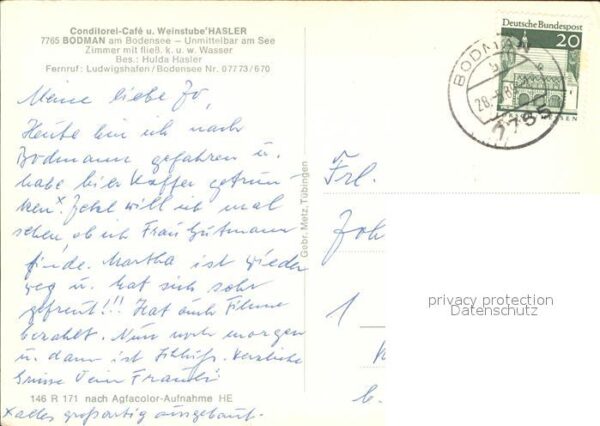 Conditorei-Café u. Weinstube HASLER
7765 BODMAN am Bodensee – Unmittelbar am See
Zimmer mit fließ. k. u. w. Wasser
Bes.: Hulda Hasler
Fernruf: Ludwigshafen/Bodensee Nr. 07773/670
Deutsche Bundespost
20
BODMAN
Meine liebe Jo,
Heute bin ich nach
Bodmann gefahren u.
habe hier Kaffee getrun-
ken.x Jetzt will ich mal
sehen, ob ich Frau Gutmann
finde. Martha ist wieder
weg u. hat sich sehr
gefreut!!! Hat auch Filme
bezahlt. Nun noch morgen
u. dann ist Schluß. Herzliche
Grüsse Dein
146 R 171 nach Agfacolor-Aufnahme HE
x alles großartig ausgebaut.
Gebr. Metz, Tübingen
Frl.
Joh
1
privacy protection
Datenschutz